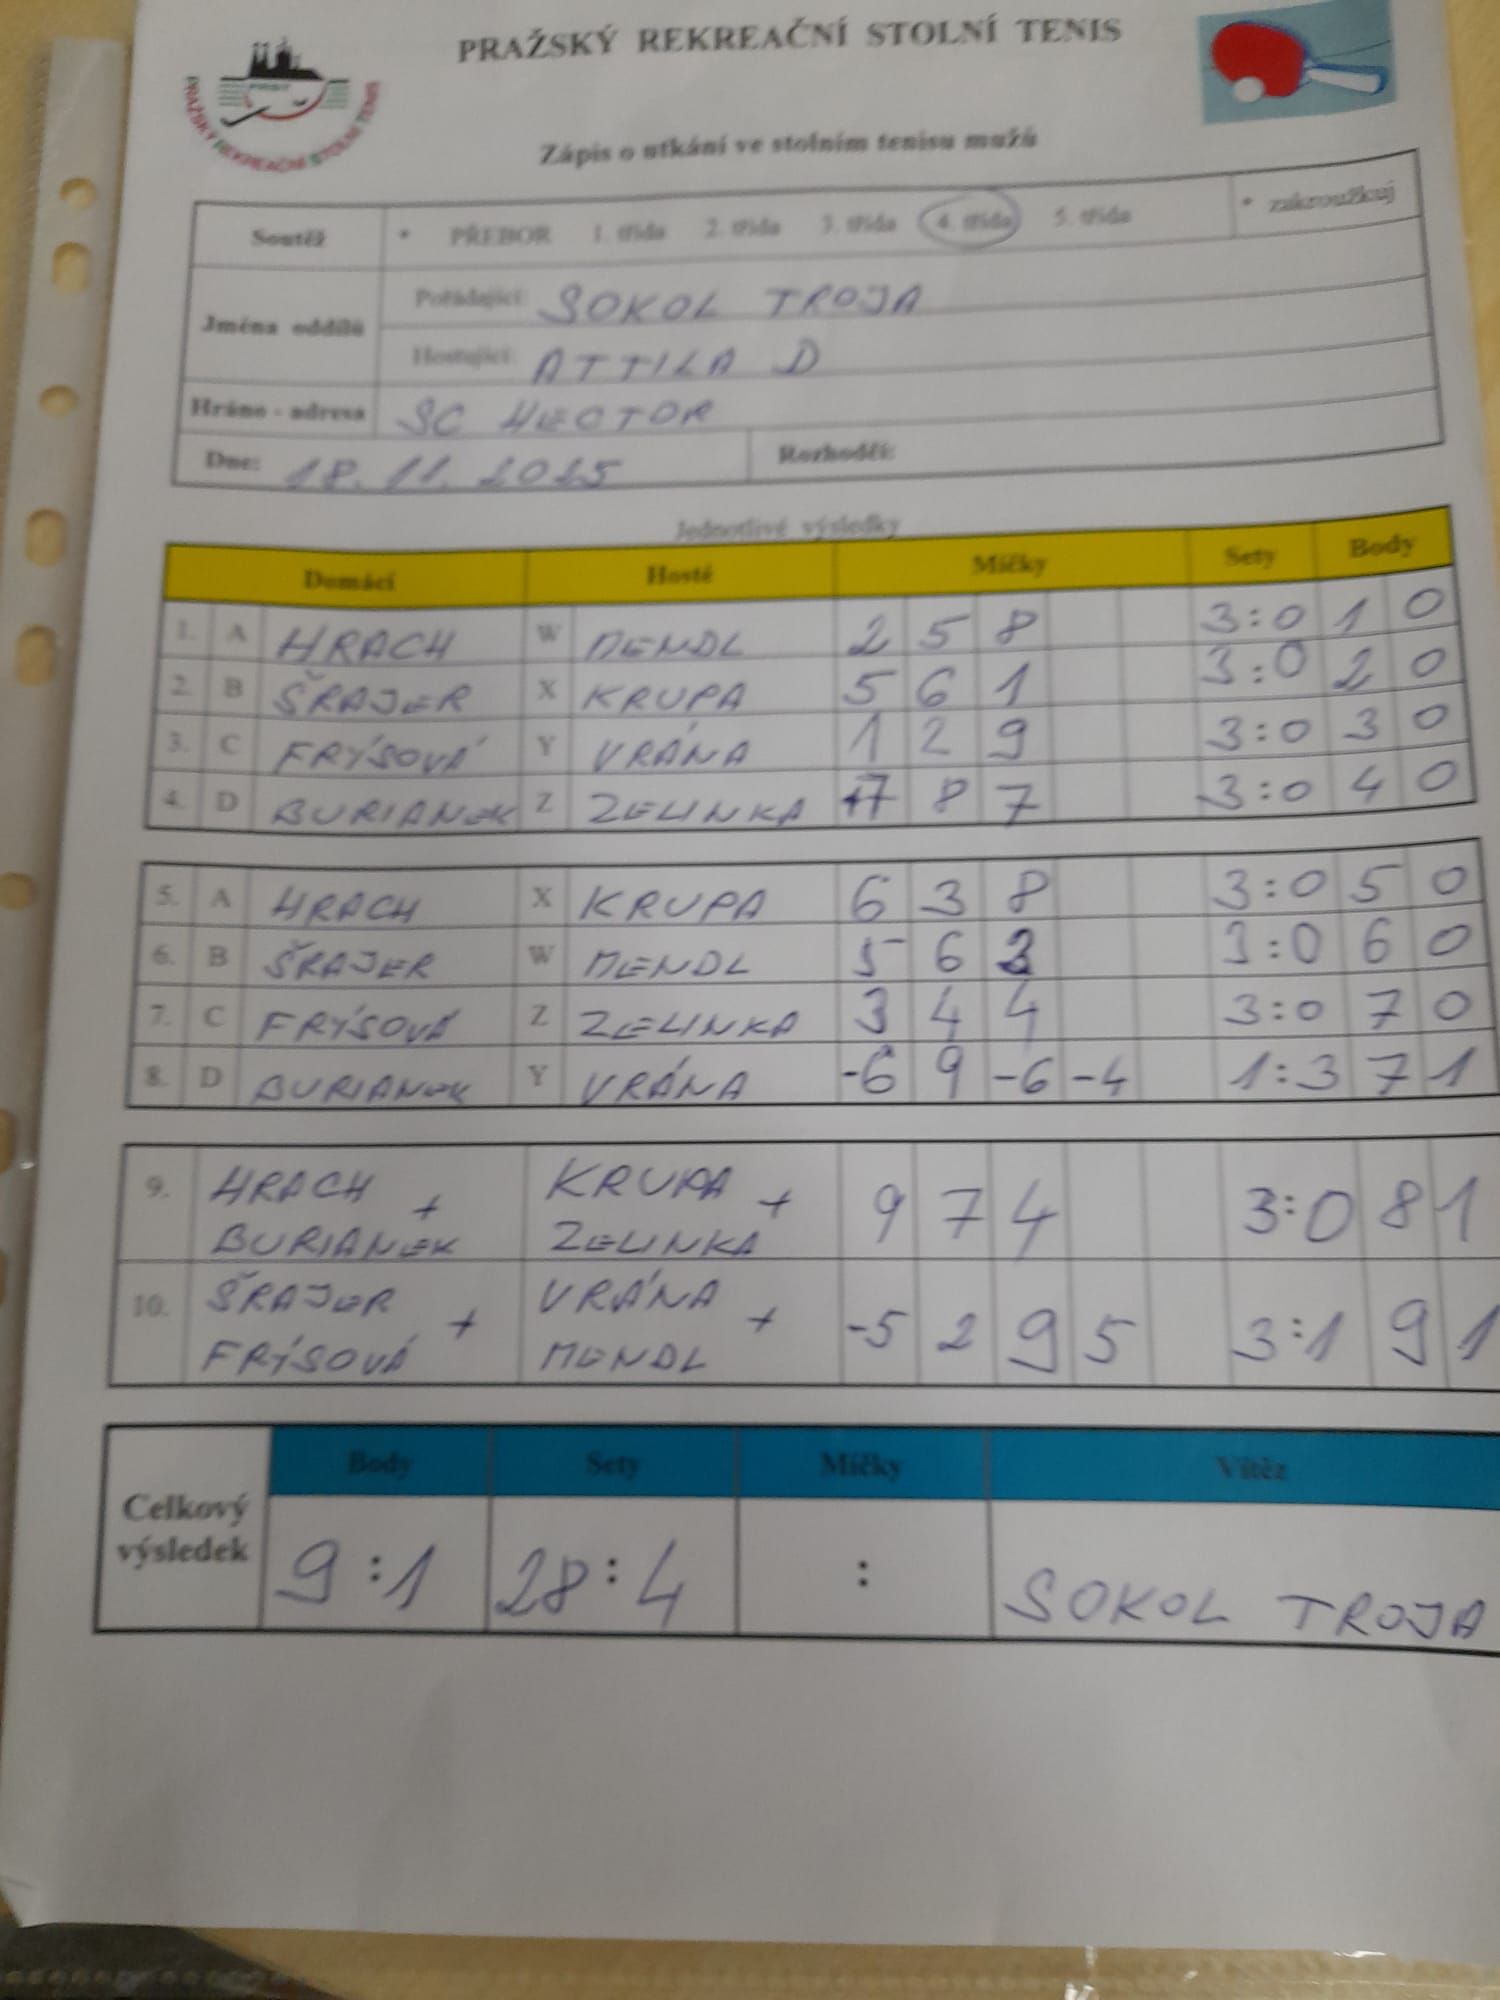 PRAŽSKÝ REKREAČNÍ STOLNÍ TENIS
PRAŽSKÝ REKREAČNÍ STOLNÍ TENIS
Zápis o utkání ve stolním tenisu mužů
Soutěž * PŘEBOR 1. třída 2. třída 3. třída 4. třída 5. třída * zakroužkuj
Jména oddílů
Pořádající: SOKOL TROJA
Hostující: ATTILA D
Hráno - adresa SC HECTOR
Dne: 18. 11. 2025 Rozhodčí:
Jednotlivé výsledky
Domácí Hosté Míčky Sety Body
1. A HRACH W MENDL 2 5 8 3:0 1 0
2. B ŠRAJER X KRUPA 5 6 1 3:0 2 0
3. C FRÝSOVÁ Y VRÁNA 1 2 9 3:0 3 0
4. D BURIANEK Z ZELINKA 7 8 7 3:0 4 0
5. A HRACH X KRUPA 6 3 8 3:0 5 0
6. B ŠRAJER W MENDL 5 6 3:0 6 0
7. C FRÝSOVÁ Z ZELINKA 3 4 4 3:0 7 0
8. D BURIANEK Y VRÁNA -6 9 -6 -4 1:3 7 1
9. HRACH + BURIANEK KRUPA + ZELINKA 9 7 4 3:0 8 1
10. ŠRAJER + FRÝSOVÁ VRÁNA + MENDL -5 2 9 5 3:1 9 1
Celkový výsledek
Body Sety Míčky Vítěz
9:1 28:4 : SOKOL TROJA